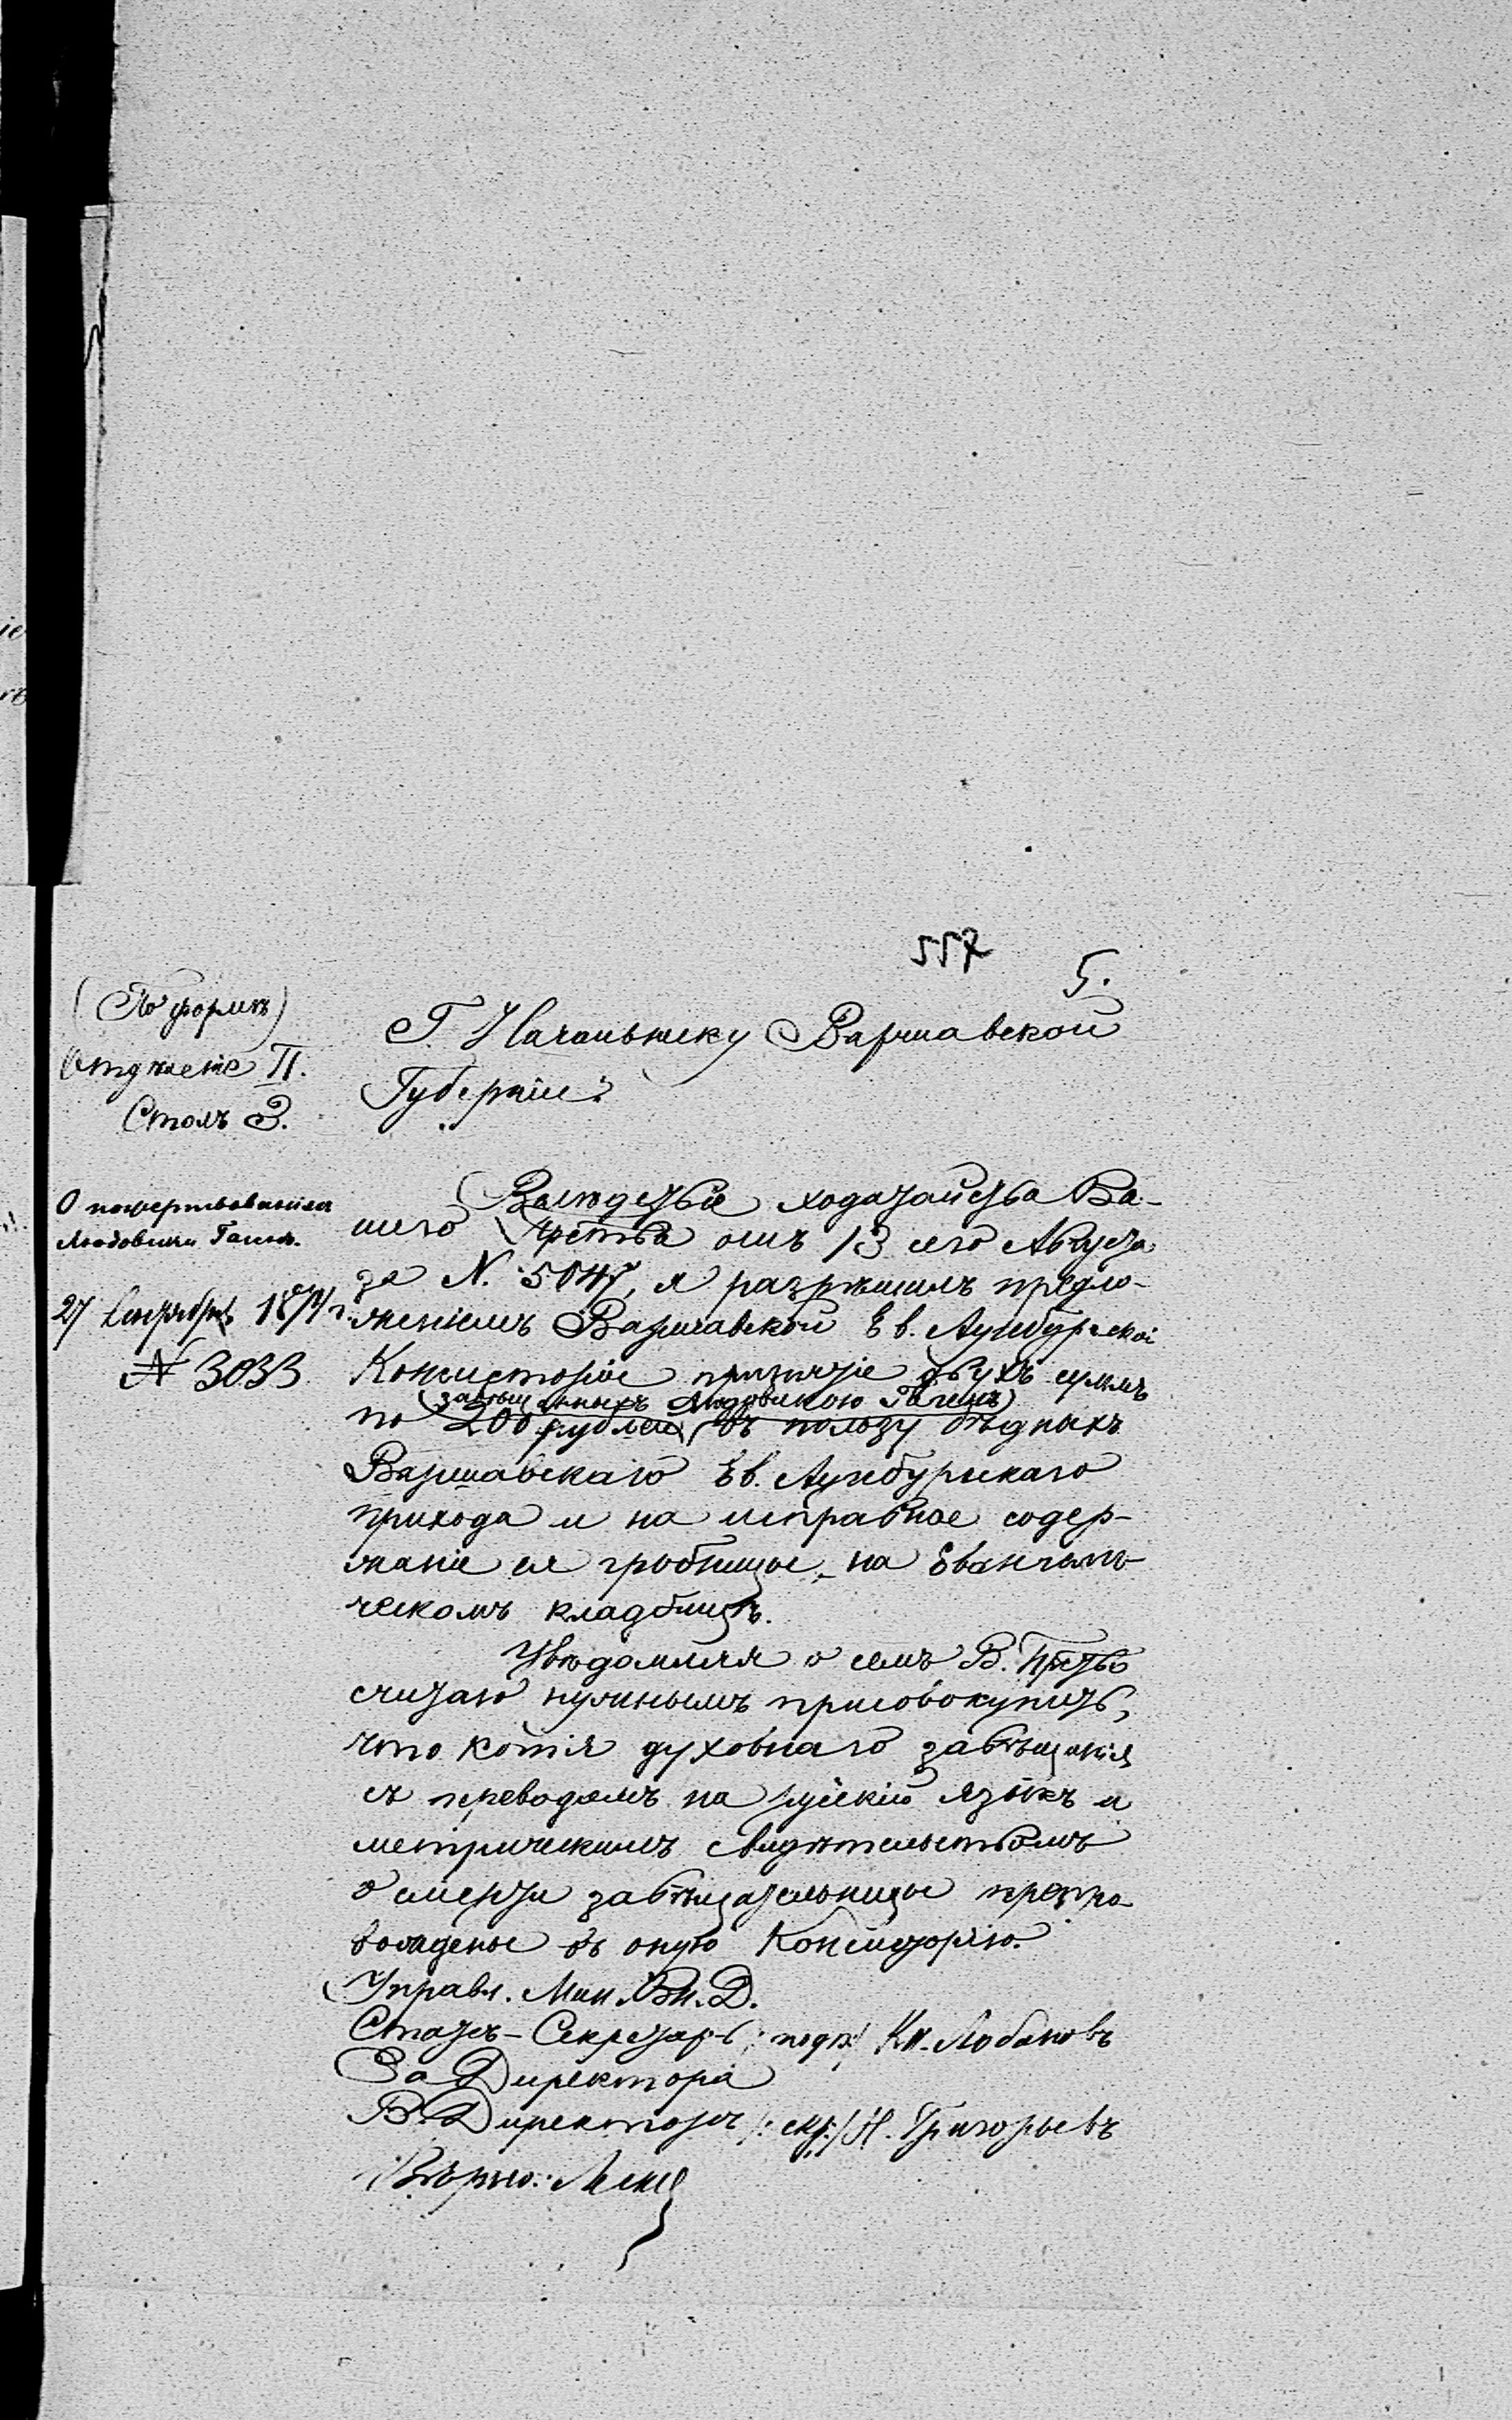 557
5.
(По формѣ)
Отдѣленіе II.
Столъ 3.
Г. Начальнику Варшавской
Губерніи.
О пожертвованіи
Людовики
27 Сентября 1874 г.
№ 3033
Вслѣдствіе ходатайства Ва-
шего Прства отъ 13 сего Августа
за N. 5047, я разрѣшилъ предло-
женіемъ Варшавской Ев. Аугсбургской
Консисторіи принятіе двухъ суммъ
(завѣщанныхъ Людовикою)
по 200 рублей въ пользу бѣдныхъ
Варшавскаго Ев. Аугсбургскаго
прихода и на исправное содер-
жаніе ея гробницы на Евангели-
ческомъ кладбищѣ.
Увѣдомляя о семъ В. Прство
считаю нужнымъ присовокупить,
что копія духовнаго завѣщанія
съ переводомъ на русскій языкъ и
метрическимъ свидѣтельствомъ
о смерти завѣщательницы препро-
вождены въ оную Консисторію.
Управл. Мин. Вн. Д.
Статсъ-Секретарь /: подп: / Кн. Лобановъ
За Директора
В. Директоръ /: скр: / Н. Григорьевъ
Вѣрно: